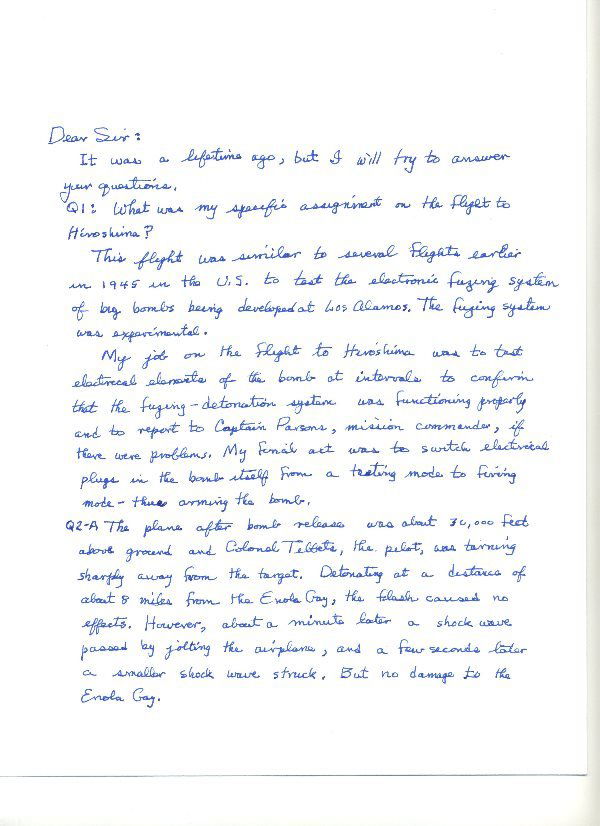 Dear Sir:
It was a lifetime ago, but I will try to answer
your questions.
Q1: What was my specific assignment on the flight to
Hiroshima?
This flight was similar to several flights earlier
in 1945 in the U.S. to test the electronic fuzing system
of big bombs being developed at Los Alamos. The fuzing system
was experimental.
My job on the flight to Hiroshima was to test
electrical elements of the bomb at intervals to confirm
that the fuzing-detonation system was functioning properly
and to report to Captain Parsons, mission commander, if
there were problems. My final act was to switch electrical
plugs in the bomb itself from a testing mode to firing
mode - thus arming the bomb.
Q2-A The plane after bomb release was about 30,000 feet
above ground and Colonel Tibbets, the pilot, was turning
sharply away from the target. Detonating at a distance of
about 8 miles from the Enola Gay, the flash caused no
effects. However, about a minute later a shock wave
passed by jolting the airplane, and a few seconds later
a smaller shock wave struck. But no damage to the
Enola Gay.